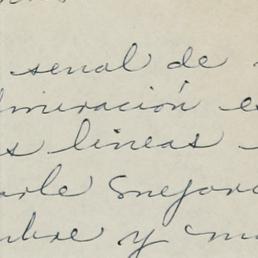 senal de
lmiración e
s lineas
arle mejor
mbre y m